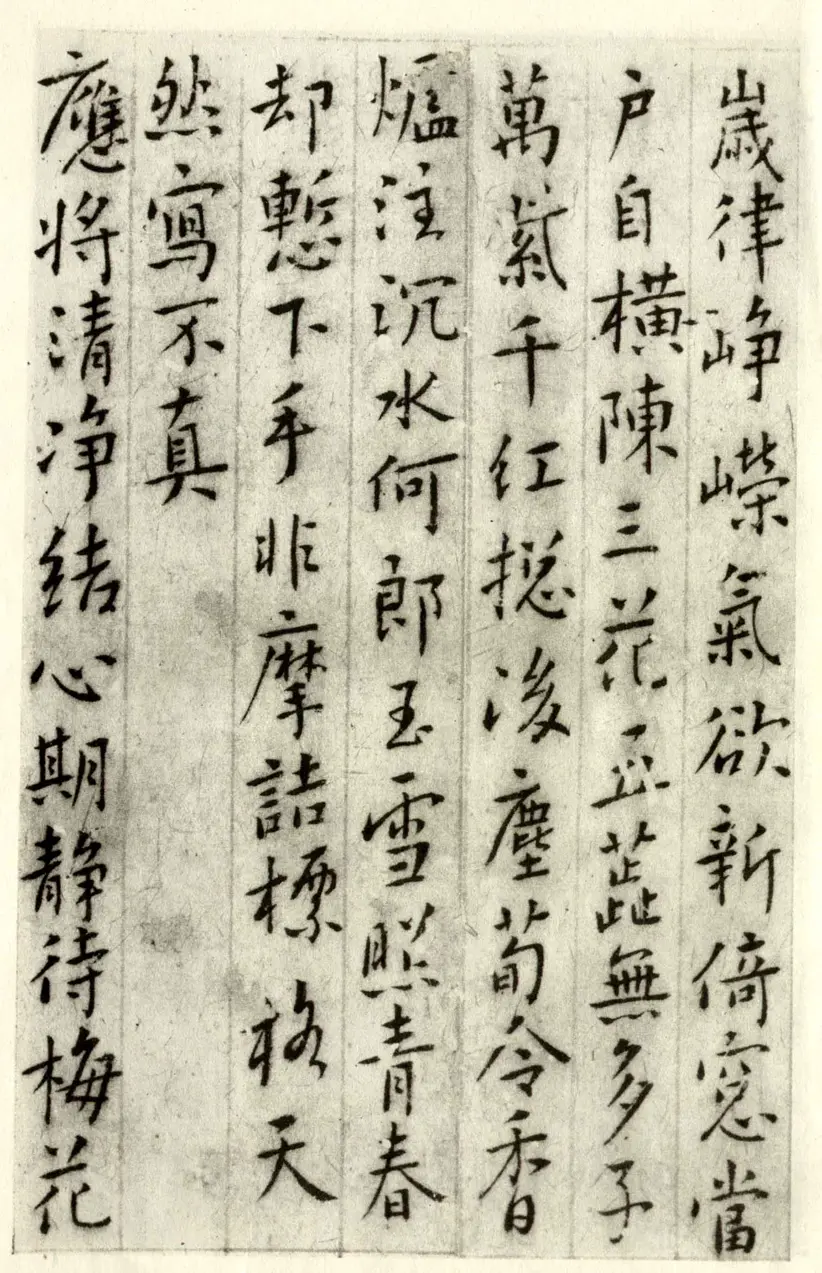 歲律崢嶸氣欲新倚窓當
户自橫陳三花五蕋無多子
萬紫千红揔後塵荀令香
爐注沉水何郎玉雪照青春
却慙下手非摩詰標格天
然寫不真
應将清净结心期静待梅花